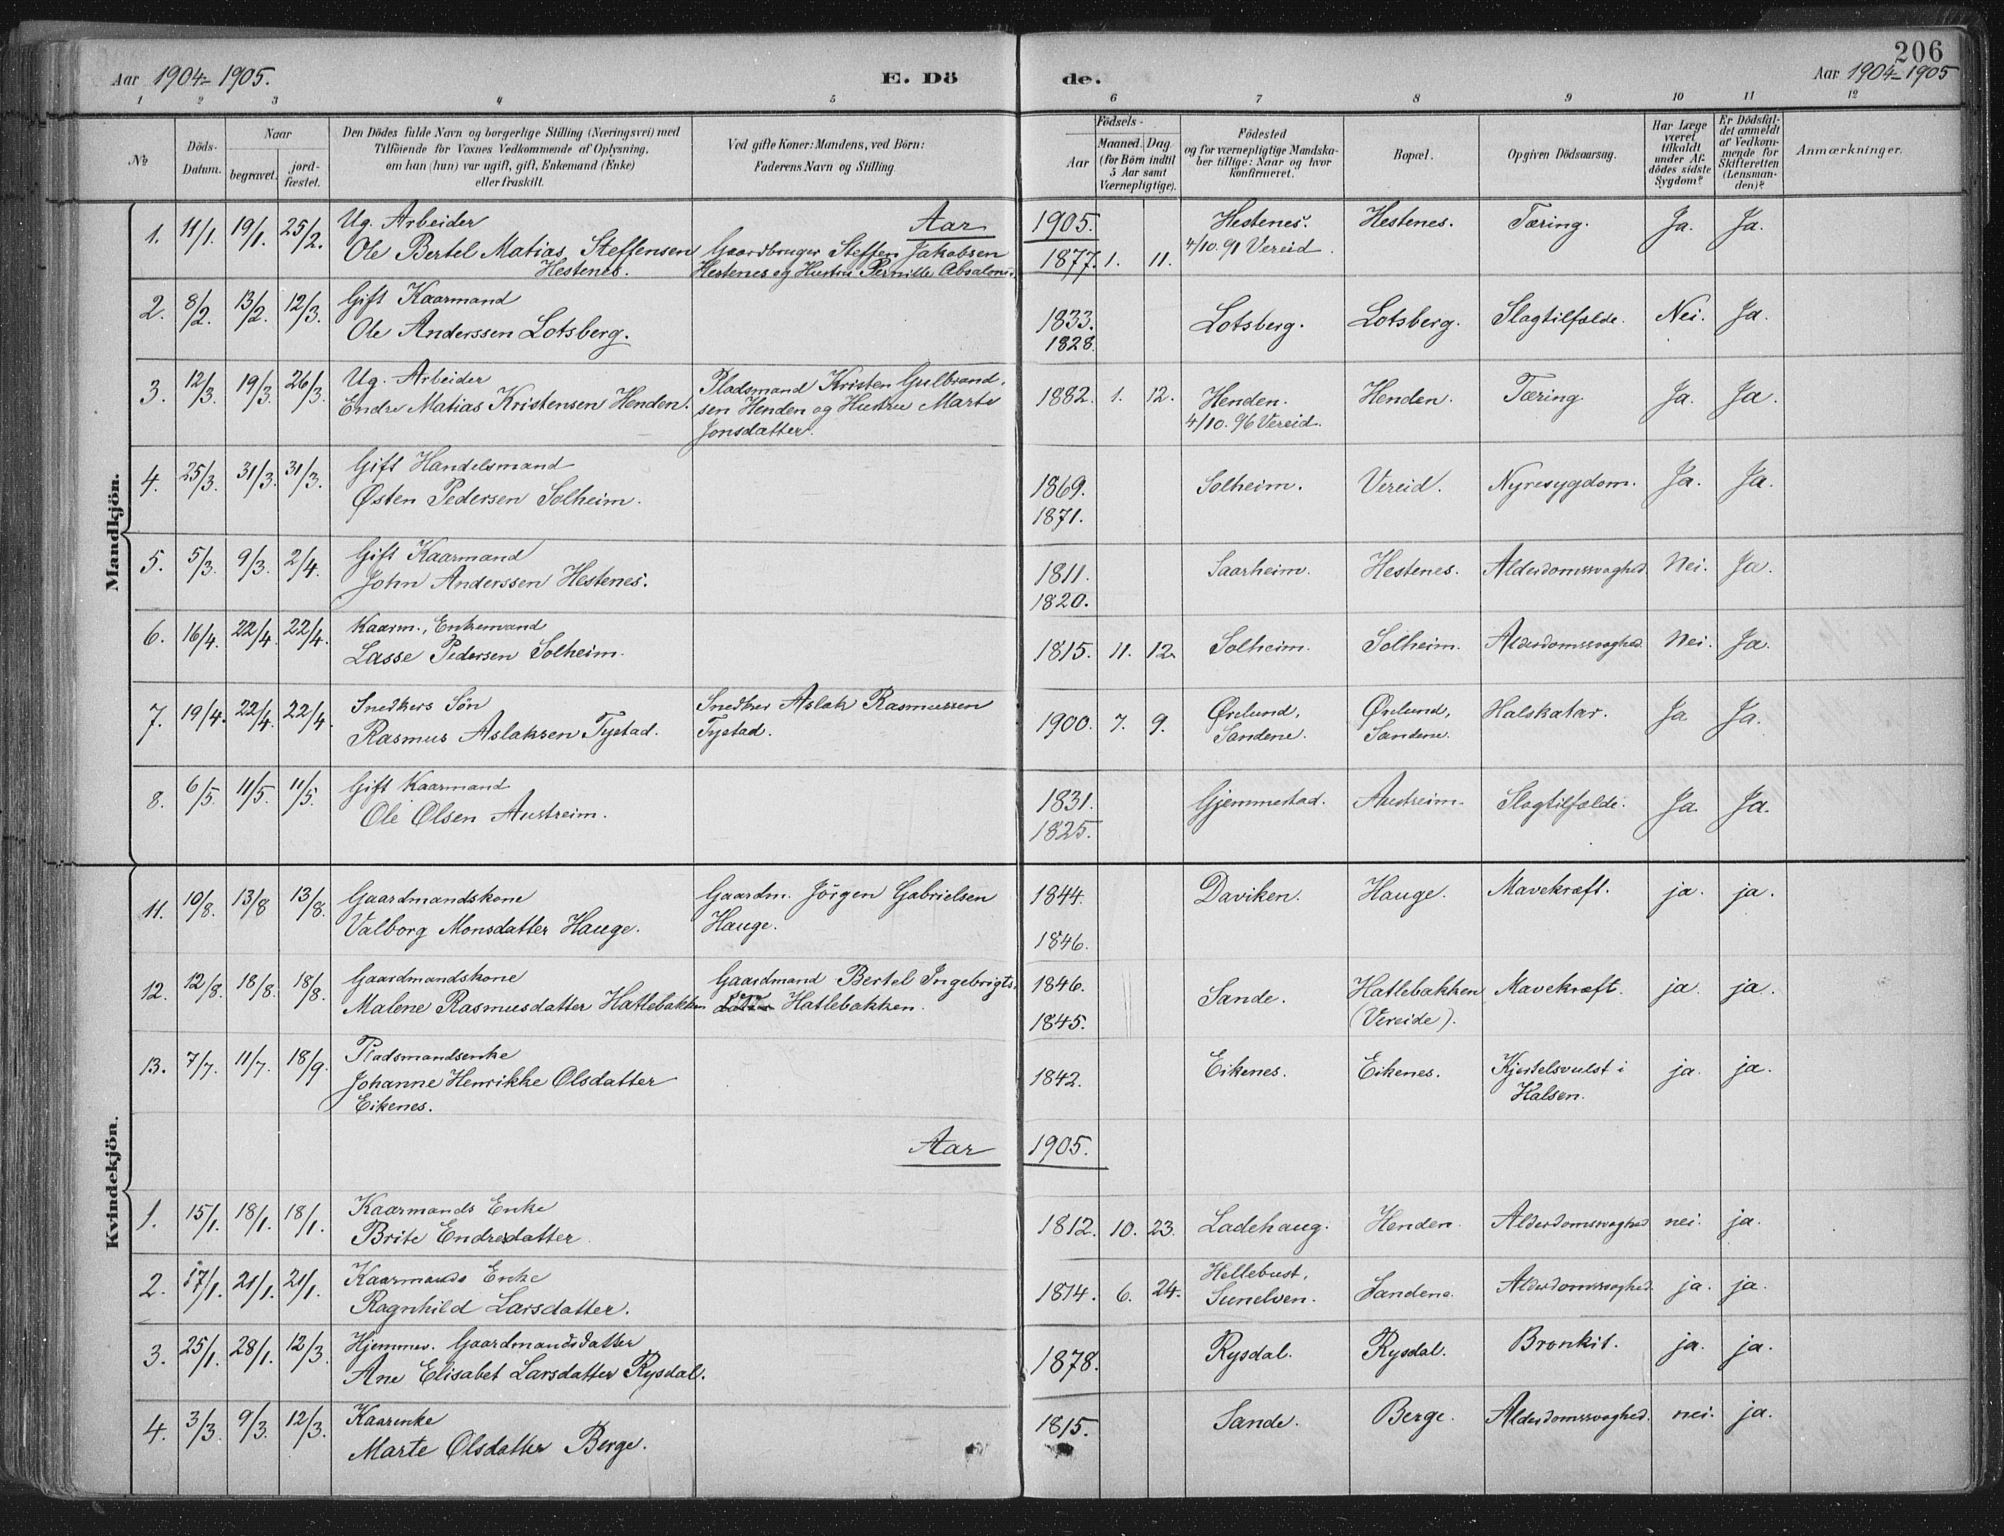 206
Aar 1904-1905. E. Dö de. Aar 1904-1905
1 2 3 4 5 6 7 8 9 10 11 12
№
Döds-Datum.
Naar
begravet.
jord-fæstet.
Den Dödes fulde Navn og borgerlige Stilling (Næringsvei) med
Tilföiende for Voxnes Vedkommende af Oplysning,
om han (hun) var ugift, gift, Enkemand (Enke)
eller fraskilt.
Ved gifte Koner: Mandens, ved Börn:
Faderens Navn og Stilling.
Födsels-
Aar
Maaned. Dag.
(for Börn indtil
5 Aar samt
Værnepligtige).
Födested
og for værnepligtige Mandska-
ber tillige: Naar og hvor
konfirmeret.
Bopæl.
Opgiven Dödsaarsag.
Har Læge
været
tilkaldt
under Af-
dödes sidste
Sygdom?
Er Dödsfal-
det anmeldt
af Vedkom-
mende for
Skifteretten
(Lensman-
den)?
Anmærkninger.
Mandkjön.
Aar 1905.
1. 11/1. 19/1. 25/2. Ug. Arbeider Hestenes. Hestenes. Tæring. Ja. Ja.
Ole Bertel Matias Steffensen Gaardbruger Steffen Jakobsen 1877. 1. 11. 4/10. 91 Vereid.
Hestenes. Hestenes og Hustru Pernille Absalonsd.
2. 8/2. 13/2. 12/3. Gift Kaarmand
Ole Anderssen Lotsberg. 1833. Lotsberg. Lotsberg. Slagtilfælde. Nei. Ja.
1828.
3. 12/3. 19/3. 26/3. Ug. Arbeider Pladsmand Kristen Gulbrand-
Endre Matias Kristensen Henden. sen Henden og Hustru Marte 1882. 1. 12. Henden. Henden. Tæring. Ja. Ja.
Jonsdatter. 4/10. 96 Vereid.
4. 25/3. 31/3. 31/3. Gift Handelsmand
Østen Pedersen Solheim. 1869. Solheim. Vereid. Nyresygdom. Ja. Ja.
1871.
5. 5/3. 9/3. 2/4. Gift Kaarmand
John Anderssen Hestenes. 1811. Saarheim. Hestenes. Alderdomssvaghed. Nei. Ja.
1820.
6. 16/4. 22/4. 22/4. Kaarm., Enkemand
Lasse Pedersen Solheim. 1815. 11. 12. Solheim. Solheim. Alderdomssvaghed. Nei. Ja.
7. 19/4. 22/4. 22/4. Snedkers Søn Snedker Aslak Rasmussen
Rasmus Aslaksen Tystad. Tystad. 1900. 7. 9. Ørelund, Ørelund, Halskatar. Ja Ja.
Sandene. Sandene.
8. 6/5. 11/5. 11/5. Gift Kaarmand
Ole Olsen Austreim. 1831. Gjemmestad. Austreim. Slagtilfælde. Ja. Ja.
1825.
Kvindekjön.
11. 10/8. 13/8 13/8. Gaardmandskone Gaardm. Jörgen Gabrielsen 1844. Daviken. Hauge. Mavekræft. ja. ja.
Valborg Monsdatter Hauge. Hauge. 1846.
12. 12/8. 18/8. 18/8. Gaardmandskone Gaardmand Bertel Ingebrigts. 1846. Sande. Hatlebakken Mavekræft. ja. ja.
Malene Rasmusdatter Hatlebakken Hatlebakken. 1845. (Vereide).
13. 7/7. 11/7. 18/9. Pladsmandsenke
Johanne Henrikke Olsdatter 1842. Eikenes. Eikenes. Kjertelsvulst i ja. ja.
Eikenes. Halsen.
Aar 1905.
1. 15/1. 18/1. 18/1. Kaarmands Enke
Brite Endresdatter. 1812. 10. 23. Ladehaug. Henden. Alderdomssvaghed nei. ja.
2. 17/1. 21/1. 21/1. Kaarmands Enke
Ragnhild Larsdatter. 1814. 6. 24. Hellebust, Sandene. Alderdomssvaghed. ja. ja.
Sunelven.
3. 25/1. 28/1. 12/3. Hjemmev. Gaardmandsdatter
Ane Elisabet Larsdatter Rysdal. 1878. Rysdal. Rysdal. Bronkit. ja. ja.
4. 3/3. 9/3. 12/3. Kaarenke
Marte Olsdatter Berge. 1815. Sande. Berge. Alderdomssvaghed. nei. ja.